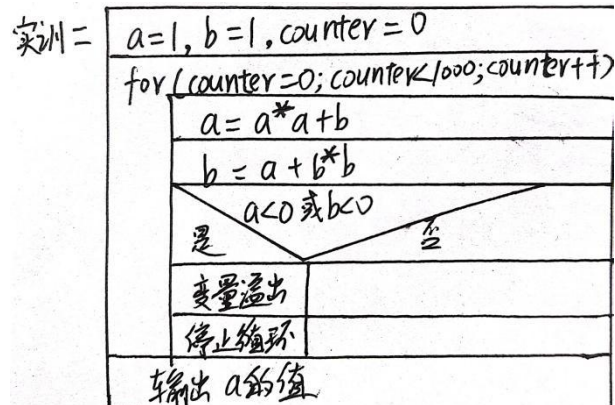 实训二
a=1, b=1, counter=0
for(counter=0; counter<1000; counter++)
a=a*a+b
b=a+b*b
a<0 或 b<0
是
否
变量溢出
停止循环
输出 a的值